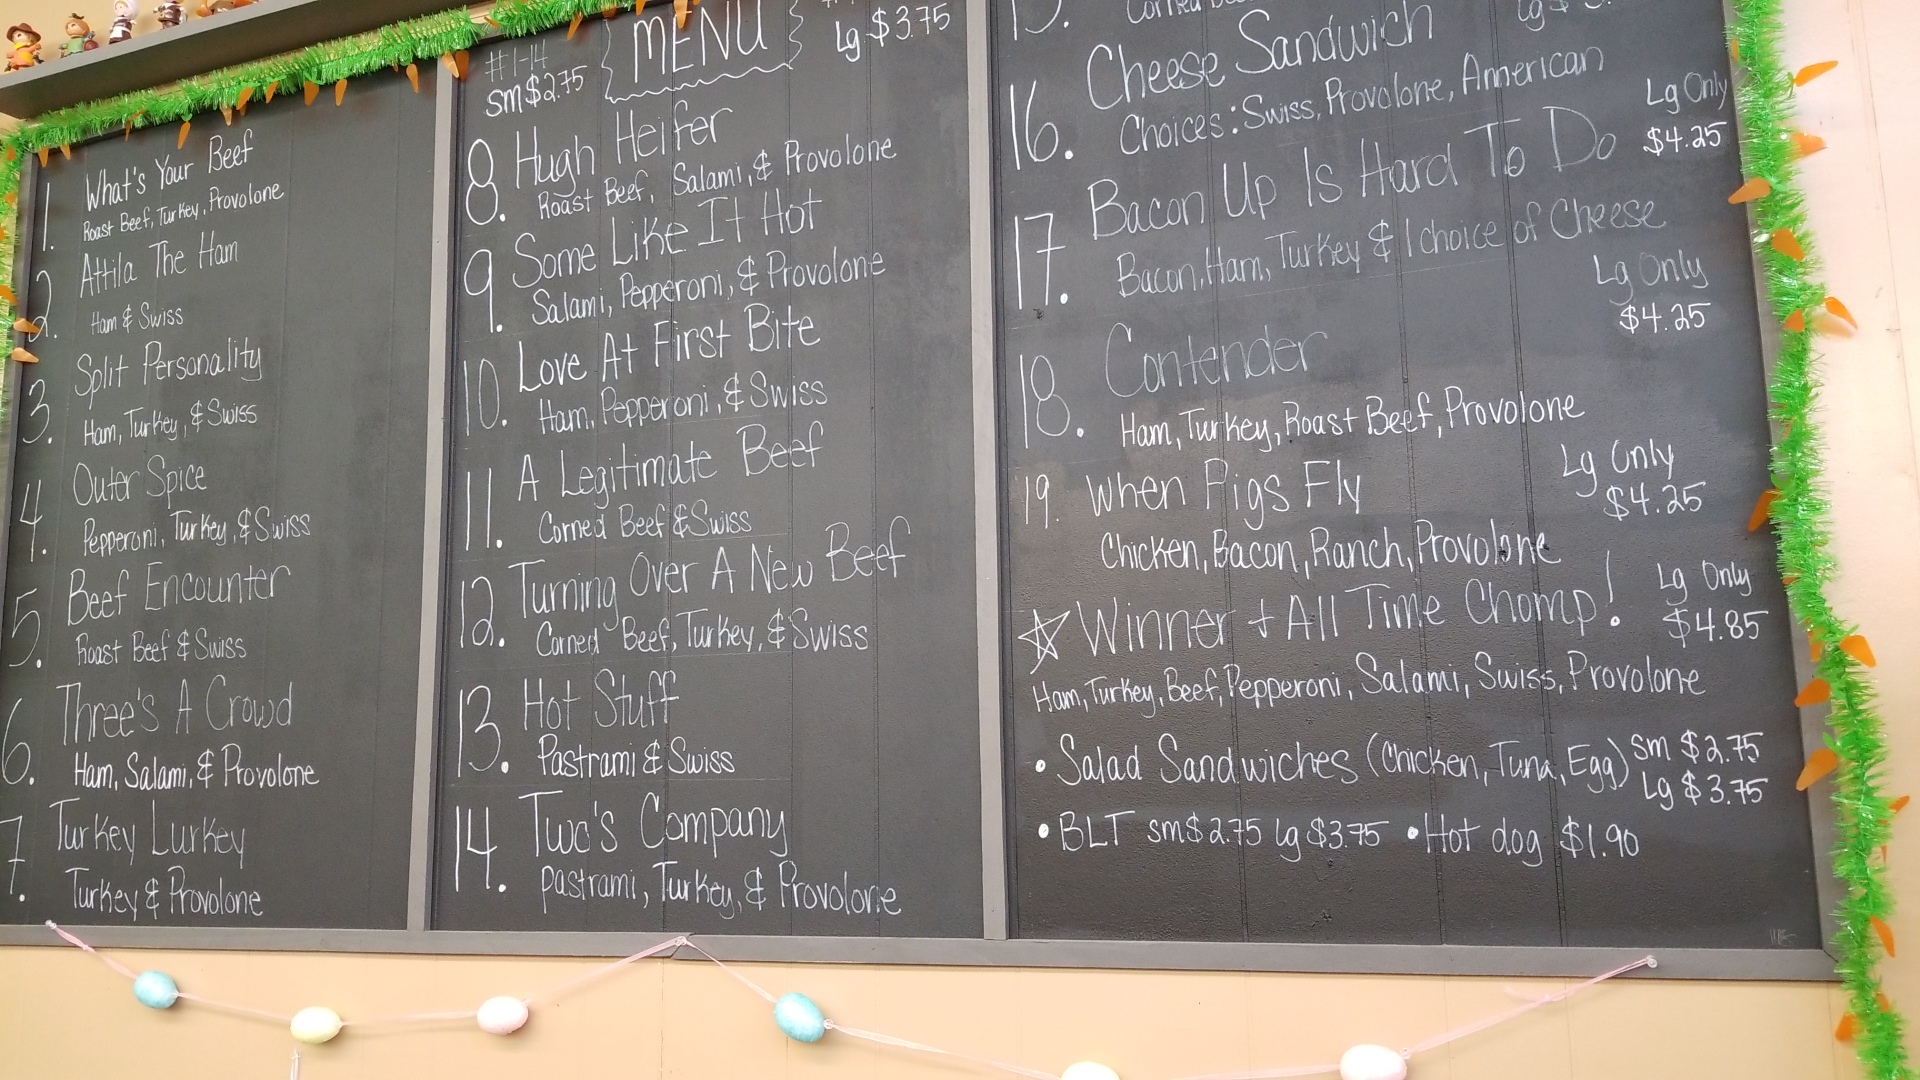 1. What's Your Beef
Roast Beef, Turkey, Provolone
2. Attila The Ham
Ham & Swiss
3. Split Personality
Ham, Turkey, & Swiss
4. Outer Spice
Pepperoni, Turkey, & Swiss
5. Beef Encounter
Roast Beef & Swiss
6. Three's A Crowd
Ham, Salami, & Provolone
7. Turkey Lurkey
Turkey & Provolone
MENU
#1-14
sm $2.75
Lg $3.75
8. Hugh Heifer
Roast Beef, Salami, & Provolone
9. Some Like It Hot
Salami, Pepperoni, & Provolone
10. Love At First Bite
Ham, Pepperoni, & Swiss
11. A Legitimate Beef
Corned Beef & Swiss
12. Turning Over A New Beef
Corned Beef, Turkey, & Swiss
13. Hot Stuff
Pastrami & Swiss
14. Two's Company
pastrami, Turkey, & Provolone
15.
Lg $
16. Cheese Sandwich
Choices: Swiss, Provolone, American
17. Bacon Up Is Hard To Do
Lg Only
$4.25
Bacon, Ham, Turkey & 1 choice of Cheese
18. Contender
Lg Only
$4.25
Ham, Turkey, Roast Beef, Provolone
19. When Pigs Fly
Lg Only
$4.25
Chicken, Bacon, Ranch, Provolone
Winner + All Time Chomp!
Lg Only
$4.85
Ham, Turkey, Beef, Pepperoni, Salami, Swiss, Provolone
• Salad Sandwiches (Chicken, Tuna, Egg) sm $2.75
Lg $3.75
• BLT sm $2.75 Lg $3.75 • Hot dog $1.90